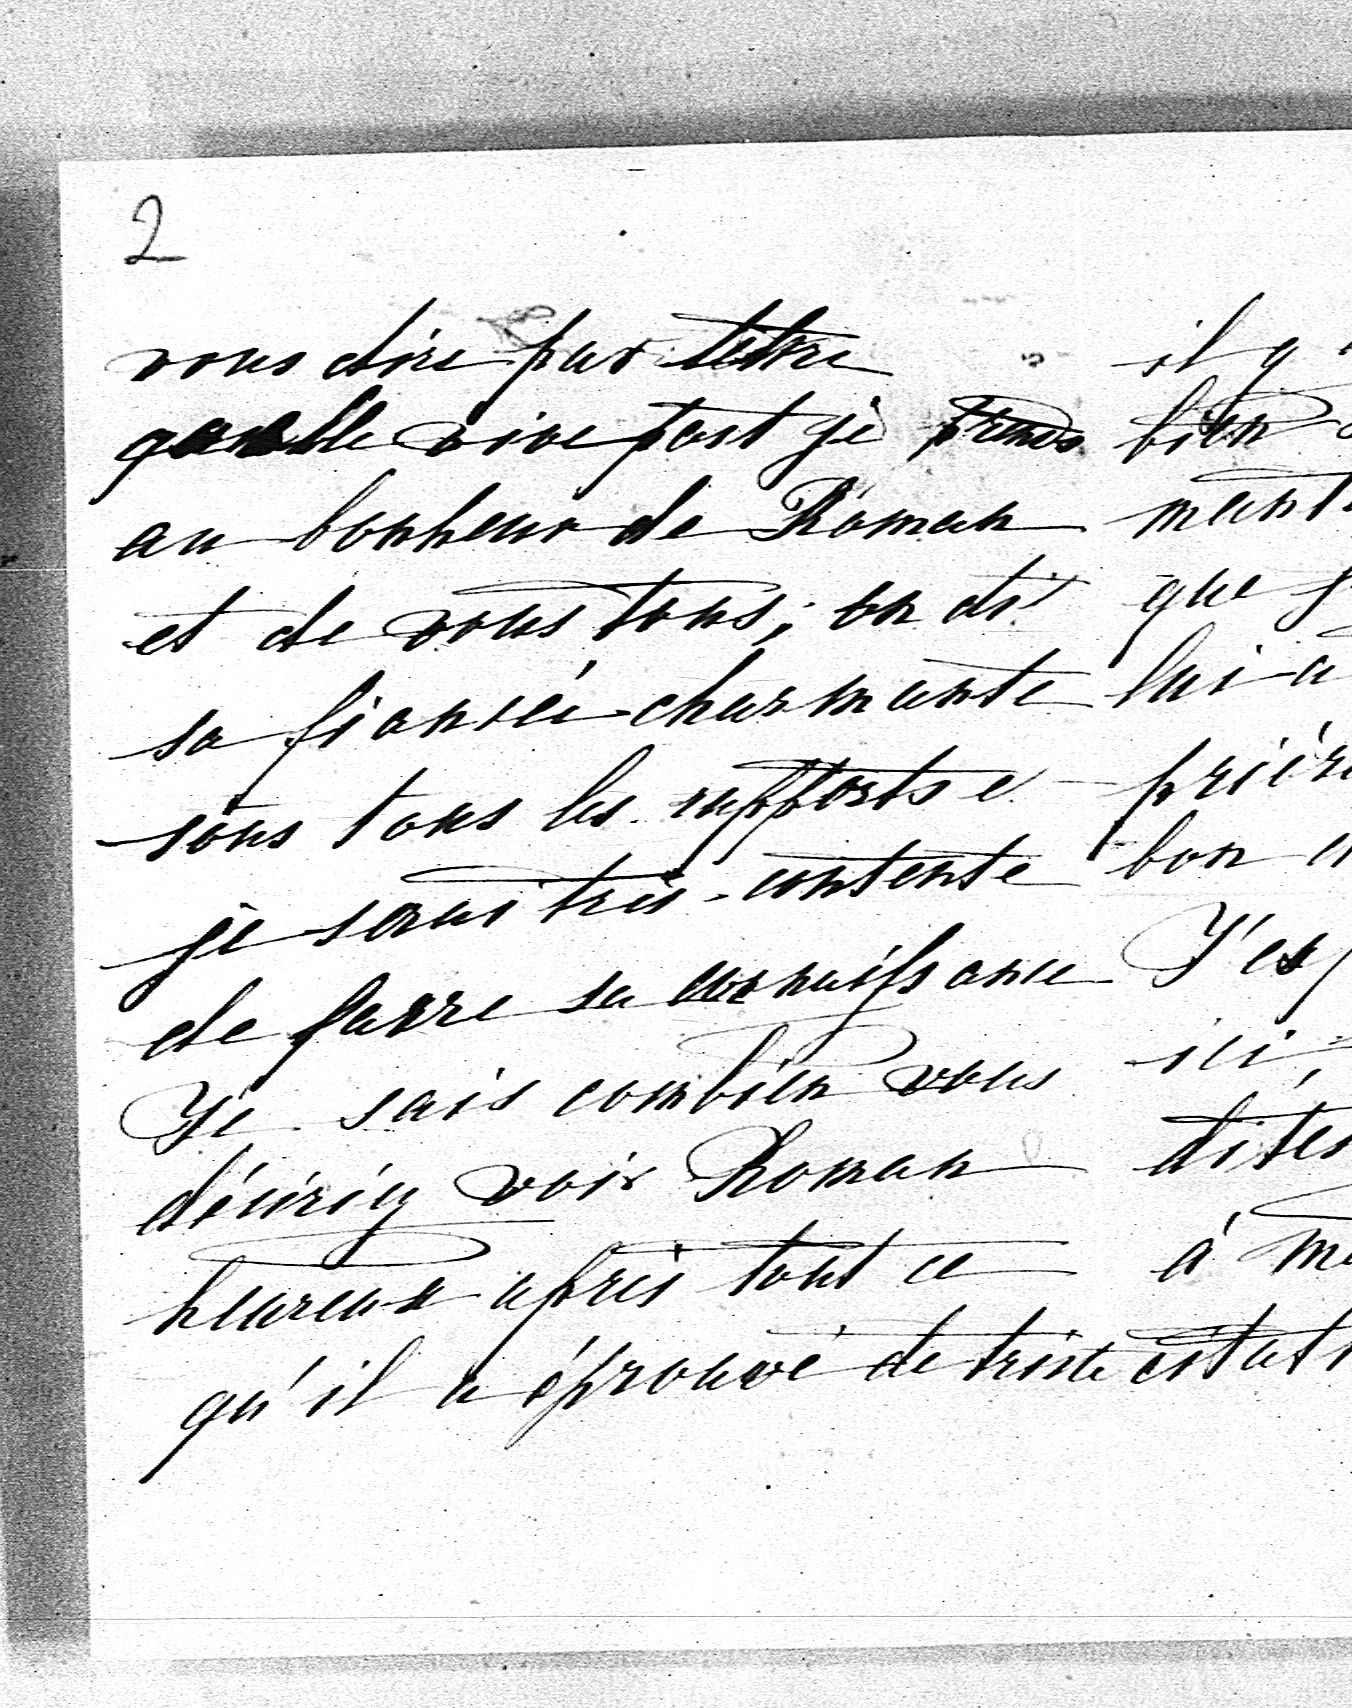 2
vous dire par lettre
quelle vive part je prends
au bonheur de Roman
et de vous tous; on dit
sa fiancée charmante
sous tous les rapports e
je serai très-contente
de faire sa connaissance
Je sais combien vous
désiriez voir Roman
heureux après tout ce
qu'il a éprouvé de triste
il y
bien
mant
que j
lui a
prière
bon
J'esp
ici,
dites
à m